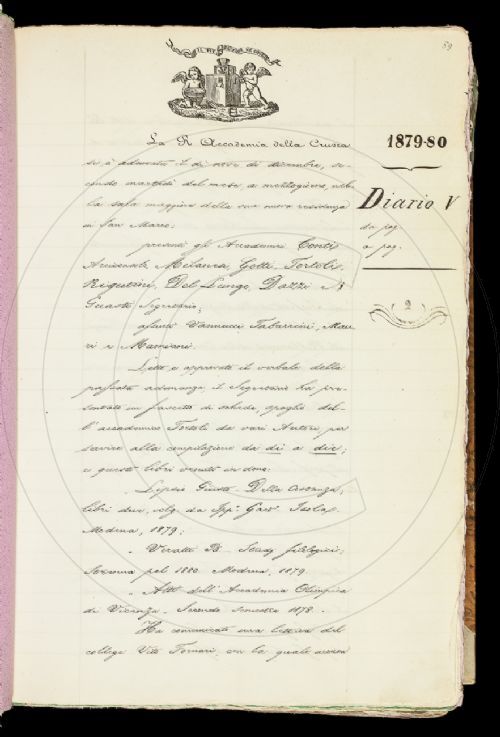 89
IL PIÙ BEL FIOR NE COGLIE
La R. Accademia della Crusca
si è adunata il dì nove di dicembre, se-
condo martedì del mese, a mezzogiorno, nel-
la sala maggiore della sua nuova residenza
in San Marco;
presenti gli Accademici Conti
Arciconsolo, Milanesi, Gotti, Tortoli,
Rigutini, Del Lungo, Dazzi e
Guasti Segretario;
assenti Vannucci Tabarrini, Mau-
ri e
Letto e approvato il verbale della
passata adunanza, il Segretario ha pre-
sentato un fascetto di schede, spoglio del-
l'accademico Tortoli da vari Autori, per
servire alla compilazione da di a die;
e questi libri venuti in dono:
Lipsio Giusto. Della Costanza,
libri due, volg. da Gio. Isola,
Modena, 1879;
Veratti B. Studj filologici;
Strenna pel 1880. Modena, 1879.
Atti dell'Accademia Olimpica
di Vicenza. Secondo semestre 1878.
Ha comunicato una lettera del
collega Vito Fornari, con la quale
1879-80
Diario V
da pag.
a pag.
2